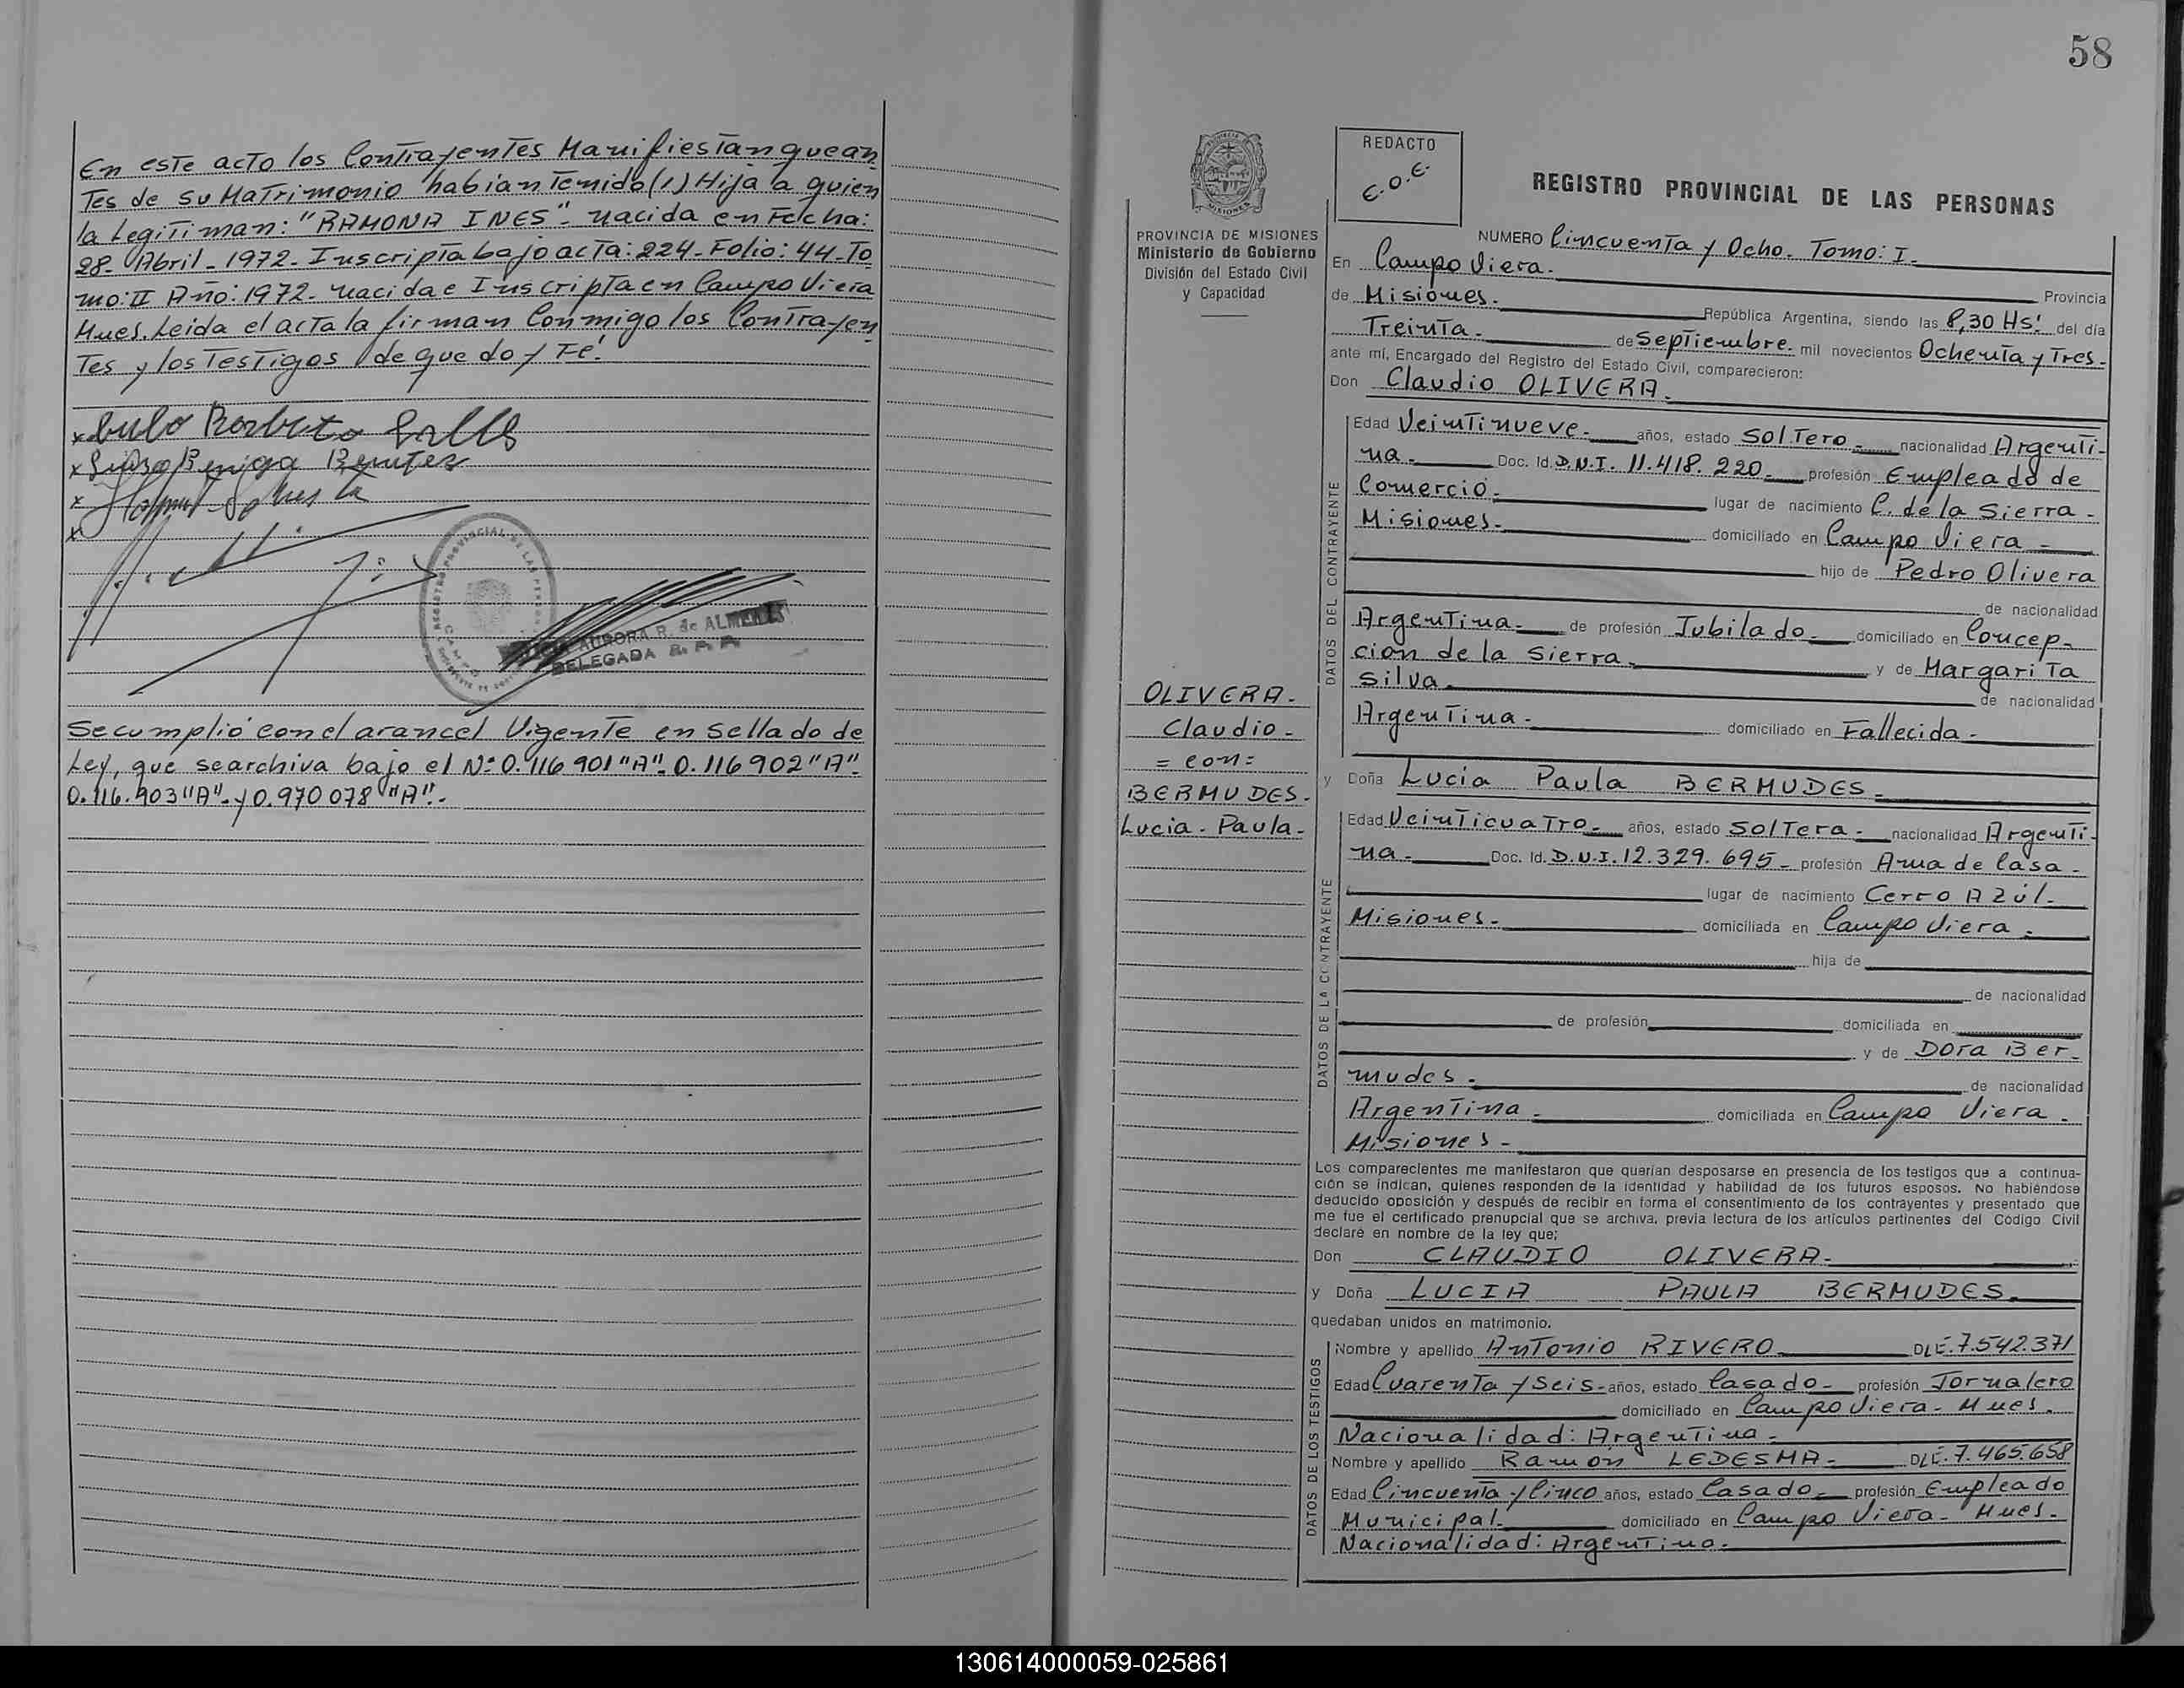 En este acto los Contrayentes Manifiestan que an
Tes de su Matrimonio habian Tenido (1) Hija a quien
la Legitiman: "RAMONA INES"- nacida en Fecha:
28- Abril- 1972- Inscripta bajo acta: 224- Folio: 44- To
mo: II Año: 1972- nacida e Inscripta en Campo Viera
Mnes. Leida el acta la firman Conmigo los Contrayen
Tes y los Testigos de que doy Fé.
x Benitez
x
x
REGISTRO PROVINCIAL DE LAS PERSONAS
AURORA R. de ALMEIDA
DELEGADA
Se cumplió con el arancel Vigente en Sellado de
Ley, que se archiva bajo el Nº 0.116 901 "A"- 0.116 902 "A"-
0.116.903 "A"- y 0.970 078 "A"-
58
PROVINCIA DE MISIONES
Ministerio de Gobierno
División del Estado Civil
y Capacidad
OLIVERA-
Claudio-
= con=
BERMUDES-
Lucia- Paula-
REDACTO
E.O.E.
REGISTRO PROVINCIAL DE LAS PERSONAS
NUMERO Cincuenta y Ocho. Tomo: I-
En Campo Viera- Provincia
de Misiones- República Argentina, siendo las 8,30 Hs: del día
Treinta- de Septiembre- mil novecientos Ochenta y Tres-
ante mí, Encargado del Registro del Estado Civil, comparecieron:
Don Claudio OLIVERA-
DATOS DEL CONTRAYENTE
Edad Veintinueve- años, estado Soltero- nacionalidad Argenti-
na- Doc. Id. D.N.I. 11.418.220- profesión Empleado de
Comercio- lugar de nacimiento C. de la Sierra-
Misiones- domiciliado en Campo Viera-
hijo de Pedro Olivera
de nacionalidad
Argentina- de profesión Jubilado- domiciliado en Concep-
cion de la Sierra- y de Margarita
Silva- de nacionalidad
Argentina- domiciliado en Fallecida-
y Doña Lucia Paula BERMUDES-
DATOS DE LA CONTRAYENTE
Edad Veinticuatro- años, estado Soltera- nacionalidad Argenti-
na- Doc. Id. D.N.I. 12.329.695- profesión Ama de Casa-
lugar de nacimiento Cerro Azúl-
Misiones- domiciliada en Campo Viera-
hija de
de nacionalidad
de profesión domiciliada en
y de Dora Ber-
mudes- de nacionalidad
Argentina- domiciliada en Campo Viera-
Misiones-
Los comparecientes me manifestaron que querían desposarse en presencia de los testigos que a continua-
ción se indican, quienes responden de la identidad y habilidad de los futuros esposos. No habiéndose
deducido oposición y después de recibir en forma el consentimiento de los contrayentes y presentado que
me fue el certificado prenupcial que se archiva, previa lectura de los artículos pertinentes del Código Civil
declaré en nombre de la ley que:
Don CLAUDIO OLIVERA-
y Doña LUCIA PAULA BERMUDES-
quedaban unidos en matrimonio.
DATOS DE LOS TESTIGOS
Nombre y apellido Antonio RIVERO- DLE. 7.542.371
Edad Cuarenta y Seis- años, estado Casado- profesión Jornalero
domiciliado en Campo Viera- Mnes-
Nacionalidad: Argentina-
Nombre y apellido Ramón LEDESMA- DLE. 7.465.658
Edad Cincuenta y Cinco años, estado Casado- profesión Empleado
Municipal- domiciliado en Campo Viera- Mnes-
Nacionalidad: Argentino-
130614000059-025861